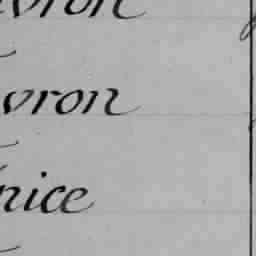 vron
vron
nice